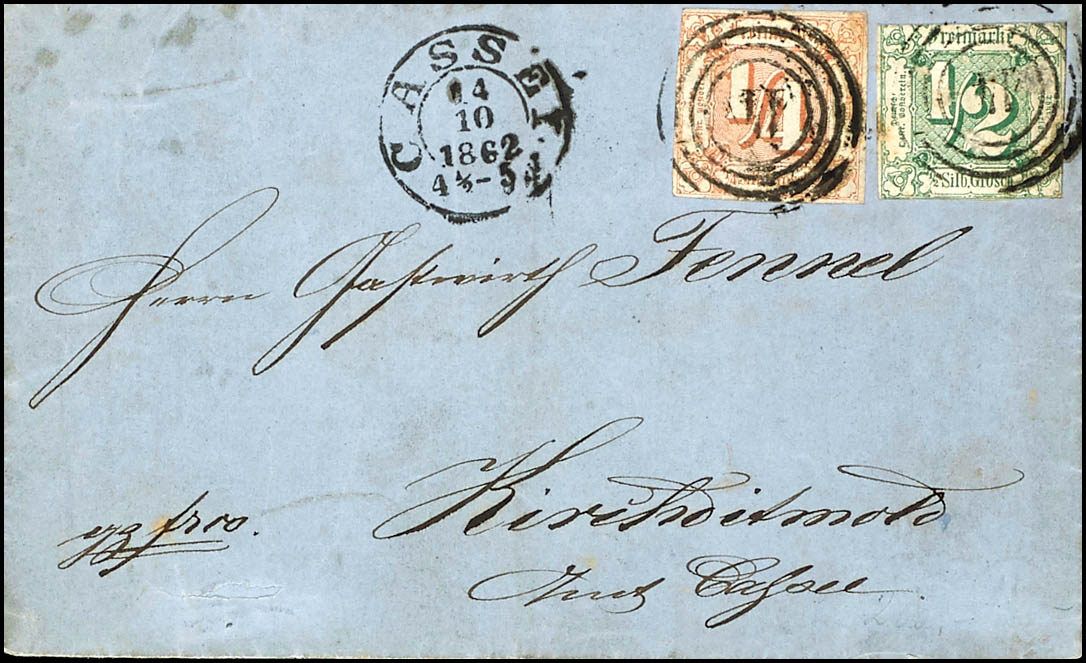 CASSEL
14
10
1862
4½-5½
Freimarke
1/4
Freimarke
1/2
½ Silb. Grosch.
Herrn Gastwirth Fennel
Kirchditmold
gz frco.
Amt Cassel